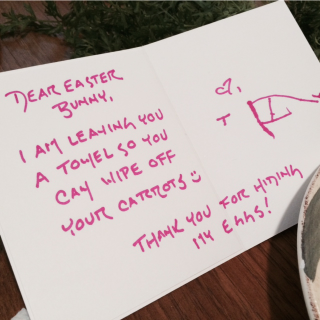 DEAR EASTER
BUNNY,
I AM LEAVING YOU
A TOWEL SO YOU
CAN WIPE OFF
YOUR CARROTS
THANK YOU FOR HIDING
MY EGGS!
T